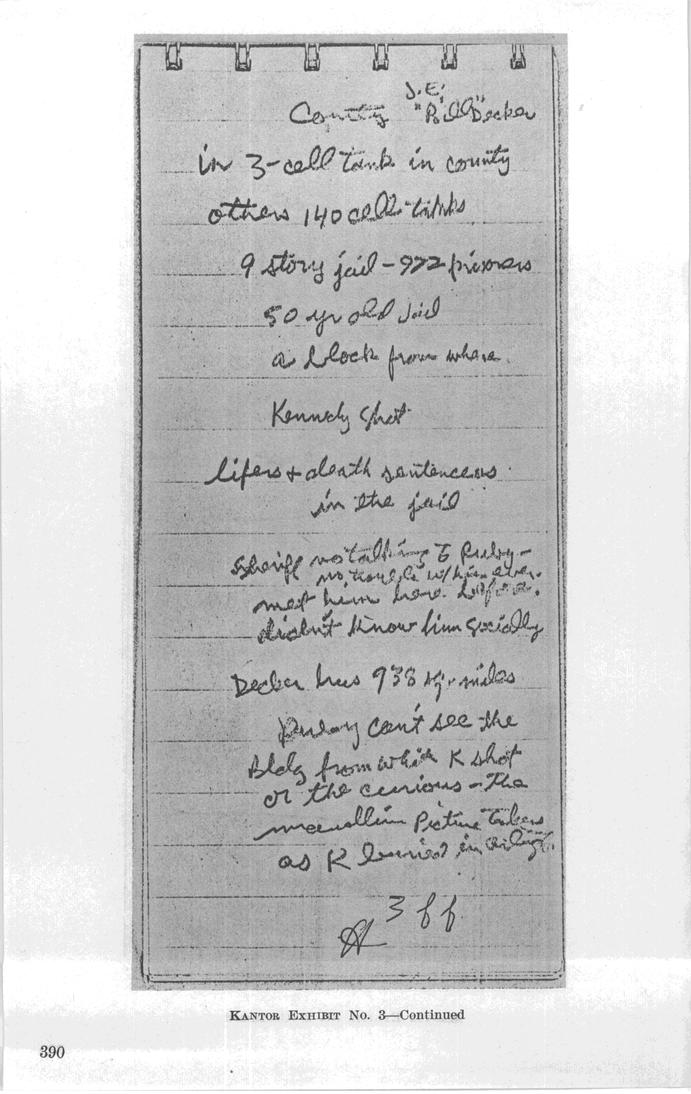 J.E.
County "Bill" Decker
in 3-cell tank in county
others 140 cell tanks
9 story jail - 922 prisoners
50 yr old jail
a block from where
Kennedy shot
lifers + death sentences
in the jail
Sheriff not talking to Ruby -
no trouble w/him ever.
met him here before.
didn't know him socially
Decker has 938 sq. miles
Ruby can't see the
Bldg from which K shot
or the curious - the
Picture takers
as K buried in
3 ff
KANTOR EXHIBIT No. 3—Continued
390